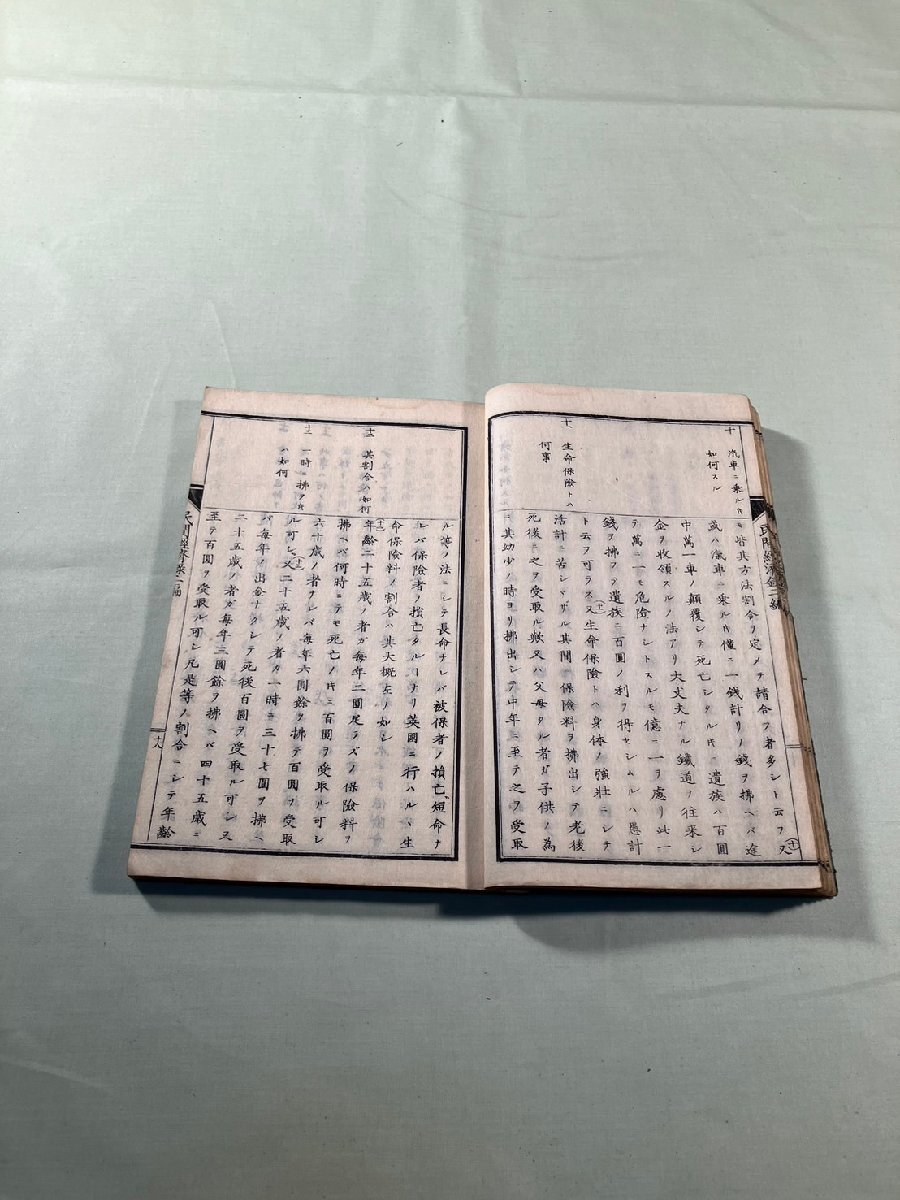 十 汽車ニ乗ル
如何スル
十 生命保険トハ
何事
トモ皆其方法割合ヲ定メテ請合フ者多シト云フ又(十)
或ハ滊車ニ乗ル片僅ニ一銭計リノ銭ヲ拂ヘバ途
中萬一車ノ顛覆シテ死亡シタル片ハ遺族ハ百圓
金ヲ收領スルノ法アリ大丈夫ナル鐵道ノ往来シ
テ萬ニ一モ危険ナシトスルモ億ニ一ヲ慮リ此一
銭ヲ拂フテ遺族ニ百圓ノ利ヲ得セシムルハ愚計
ト云フ可ラズ又生命保険トハ身体ノ強壮ニシテ
活計ニ苦シマザル其間ニ保険料ヲ拂出シテ老後
死後ニ之ヲ受取ル歟又ハ父母タル者ガ子供ノ為
ニ其幼少ノ時ヨリ拂出シテ中年ニ至テ之ヲ受取
民間經濟録二編
十二 其割合ハ如何
十三 一時ニ拂フ
ハ如何
ル等ノ法ニシテ長命ナレバ被保者ノ損亡、短命ナ
ルバ保険者ノ損亡タルコナリ英國ニ行ハルヽ生
命保険料ノ割合ハ其大概左ノ如シ
年齢二十五歳ノ者ガ毎年二圓足ラズノ保険料ヲ
拂ヘバ何時ニテモ死亡ノ片ニ百圓ヲ受取ル可シ
六十歳ノ者ヲレバ毎年六圓餘ヲ拂テ百圓ヲ受取
ル可シ又二十五歳ノ者ガ一時ニ三十七圓ヲ拂ヘ
バ毎年ノ出金ナクシテ死後百圓ヲ受取ル可シ又
二十五歳ノ者ガ毎年三圓餘ヲ拂ヘバ四十五歳ニ
至テ百圓ヲ受取ル可シ凡是等ノ割合ニシテ年齢
民間經濟録二編
十八